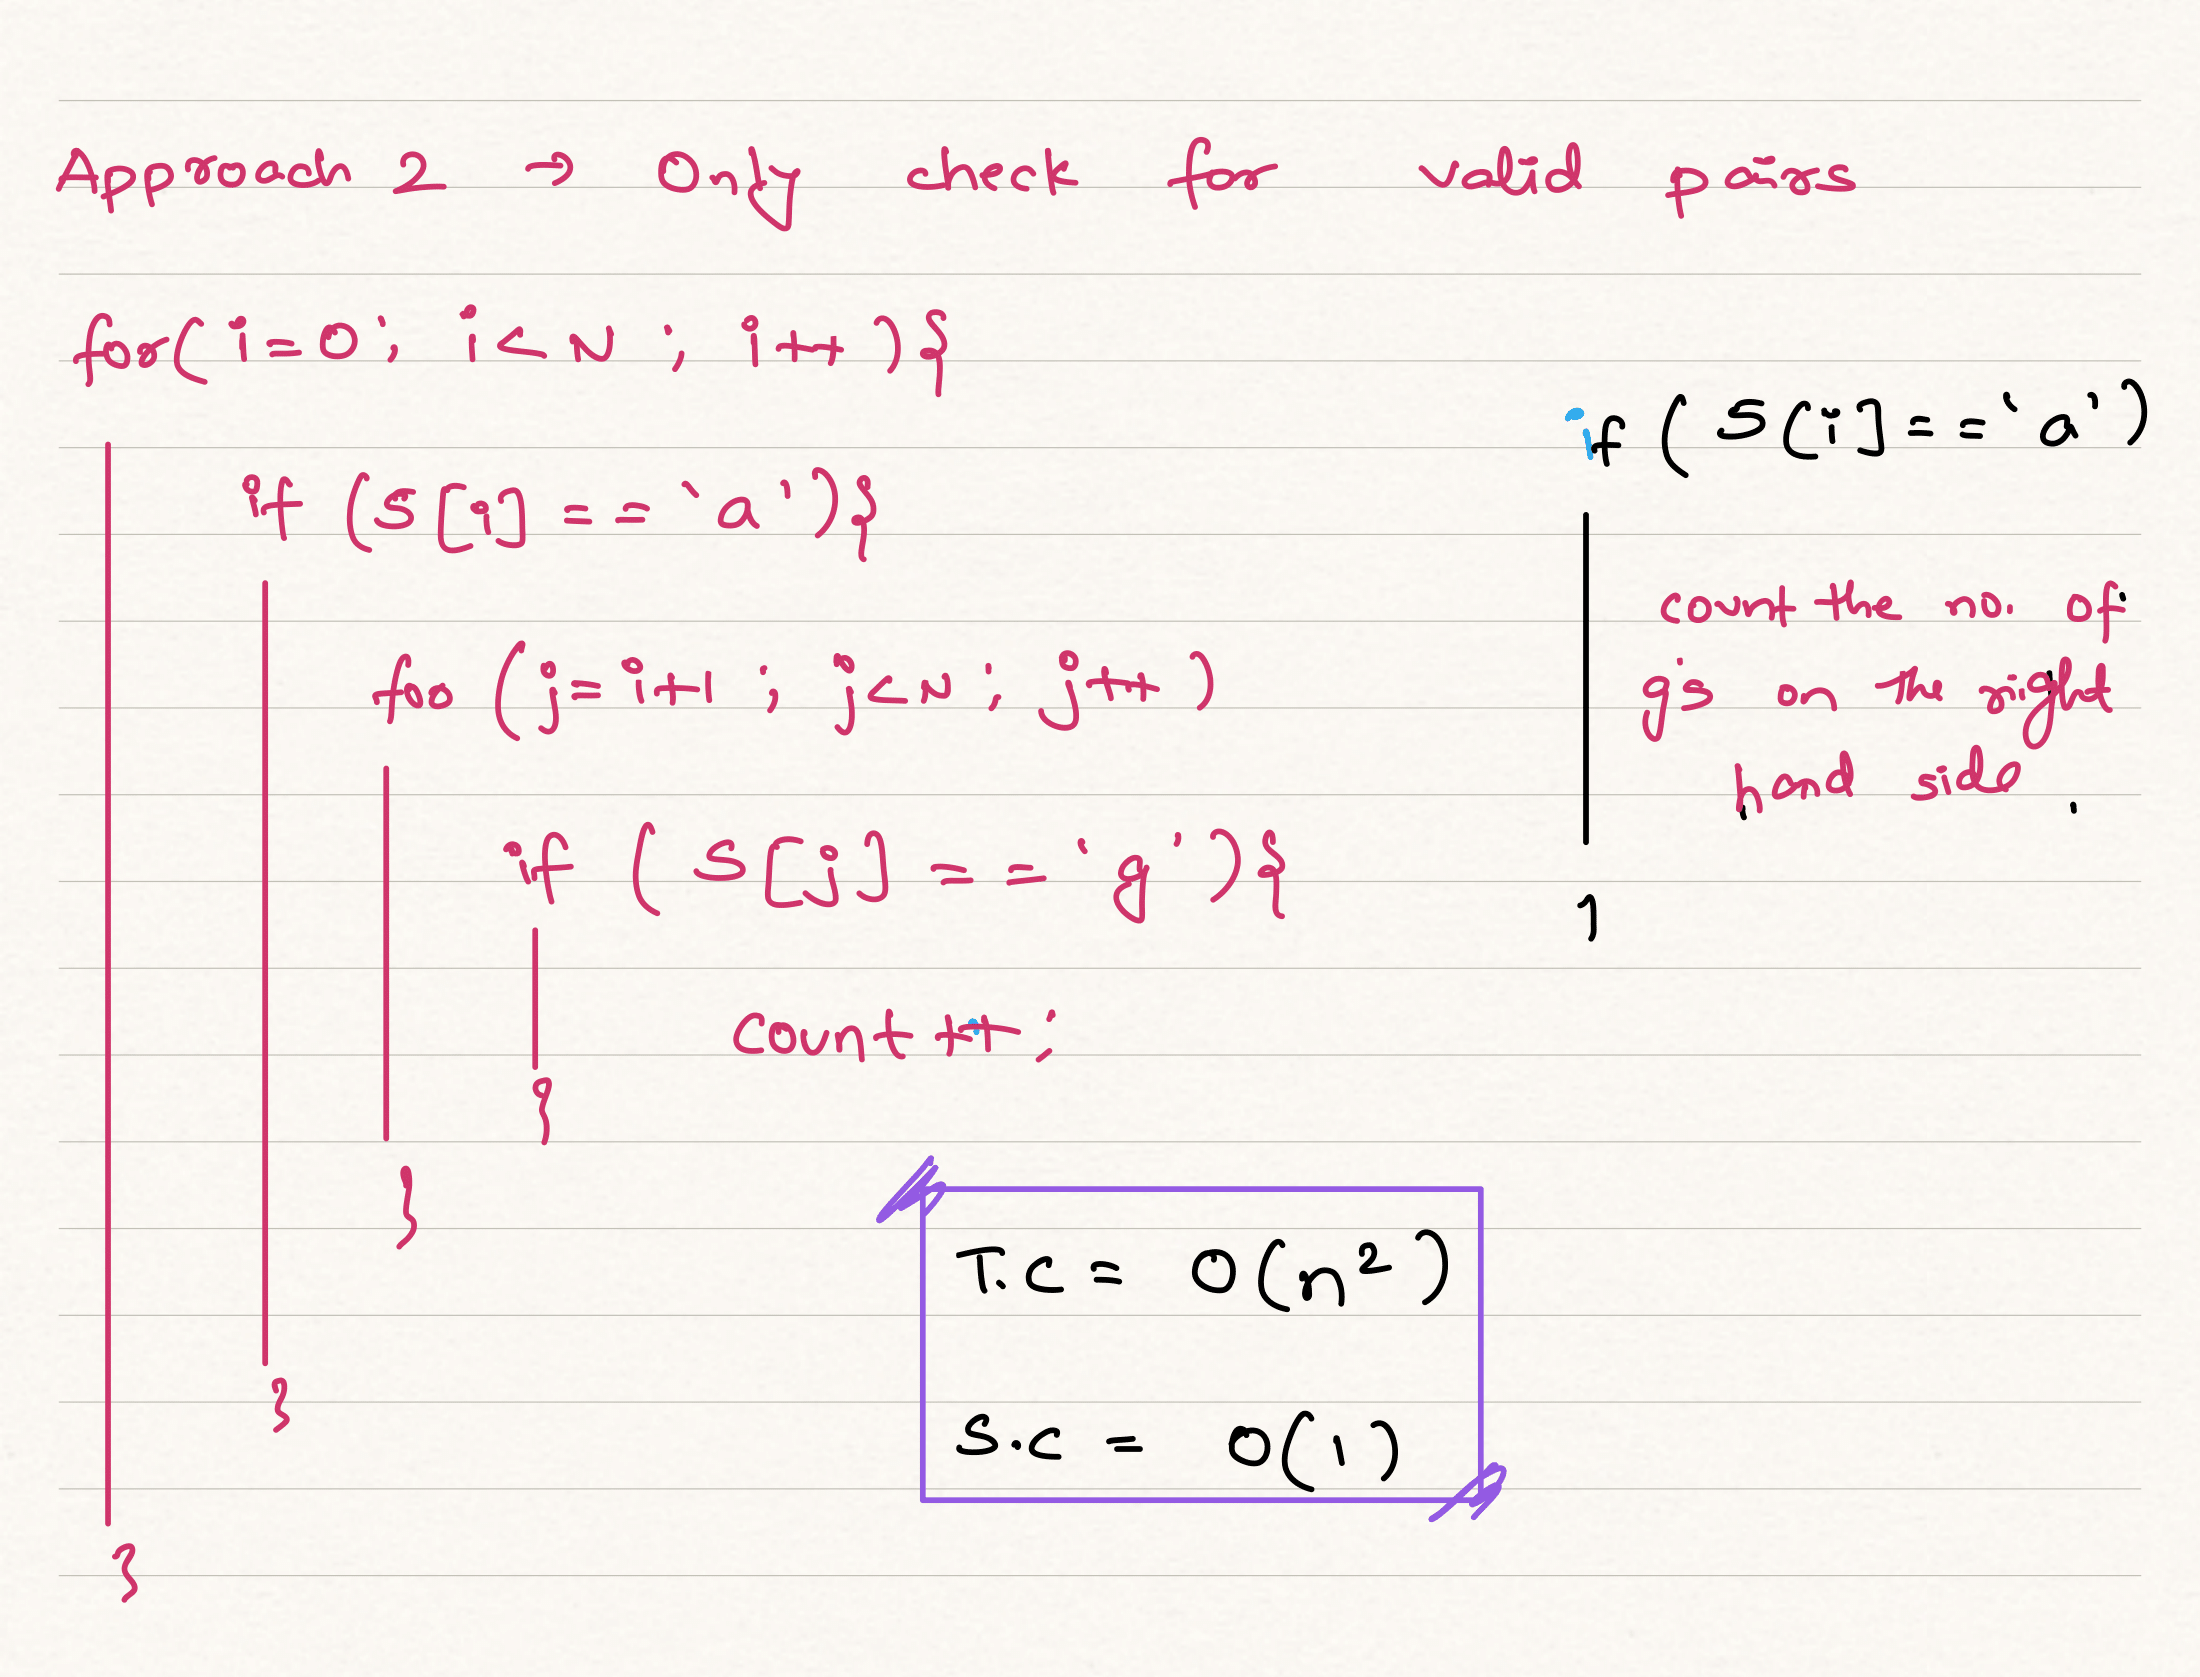 Approach 2 → Only check for valid pairs
for(i=0; i<N ; i++){
if (S[i] == 'a'){
foo (j=i+1 ; j<N; j++)
if (S[j] == 'g'){
count ++;
}
}
}
}
if (S[i] == 'a')
count the no. of
g's on the right
hand side.
T.C = O(n²)
S.C = O(1)